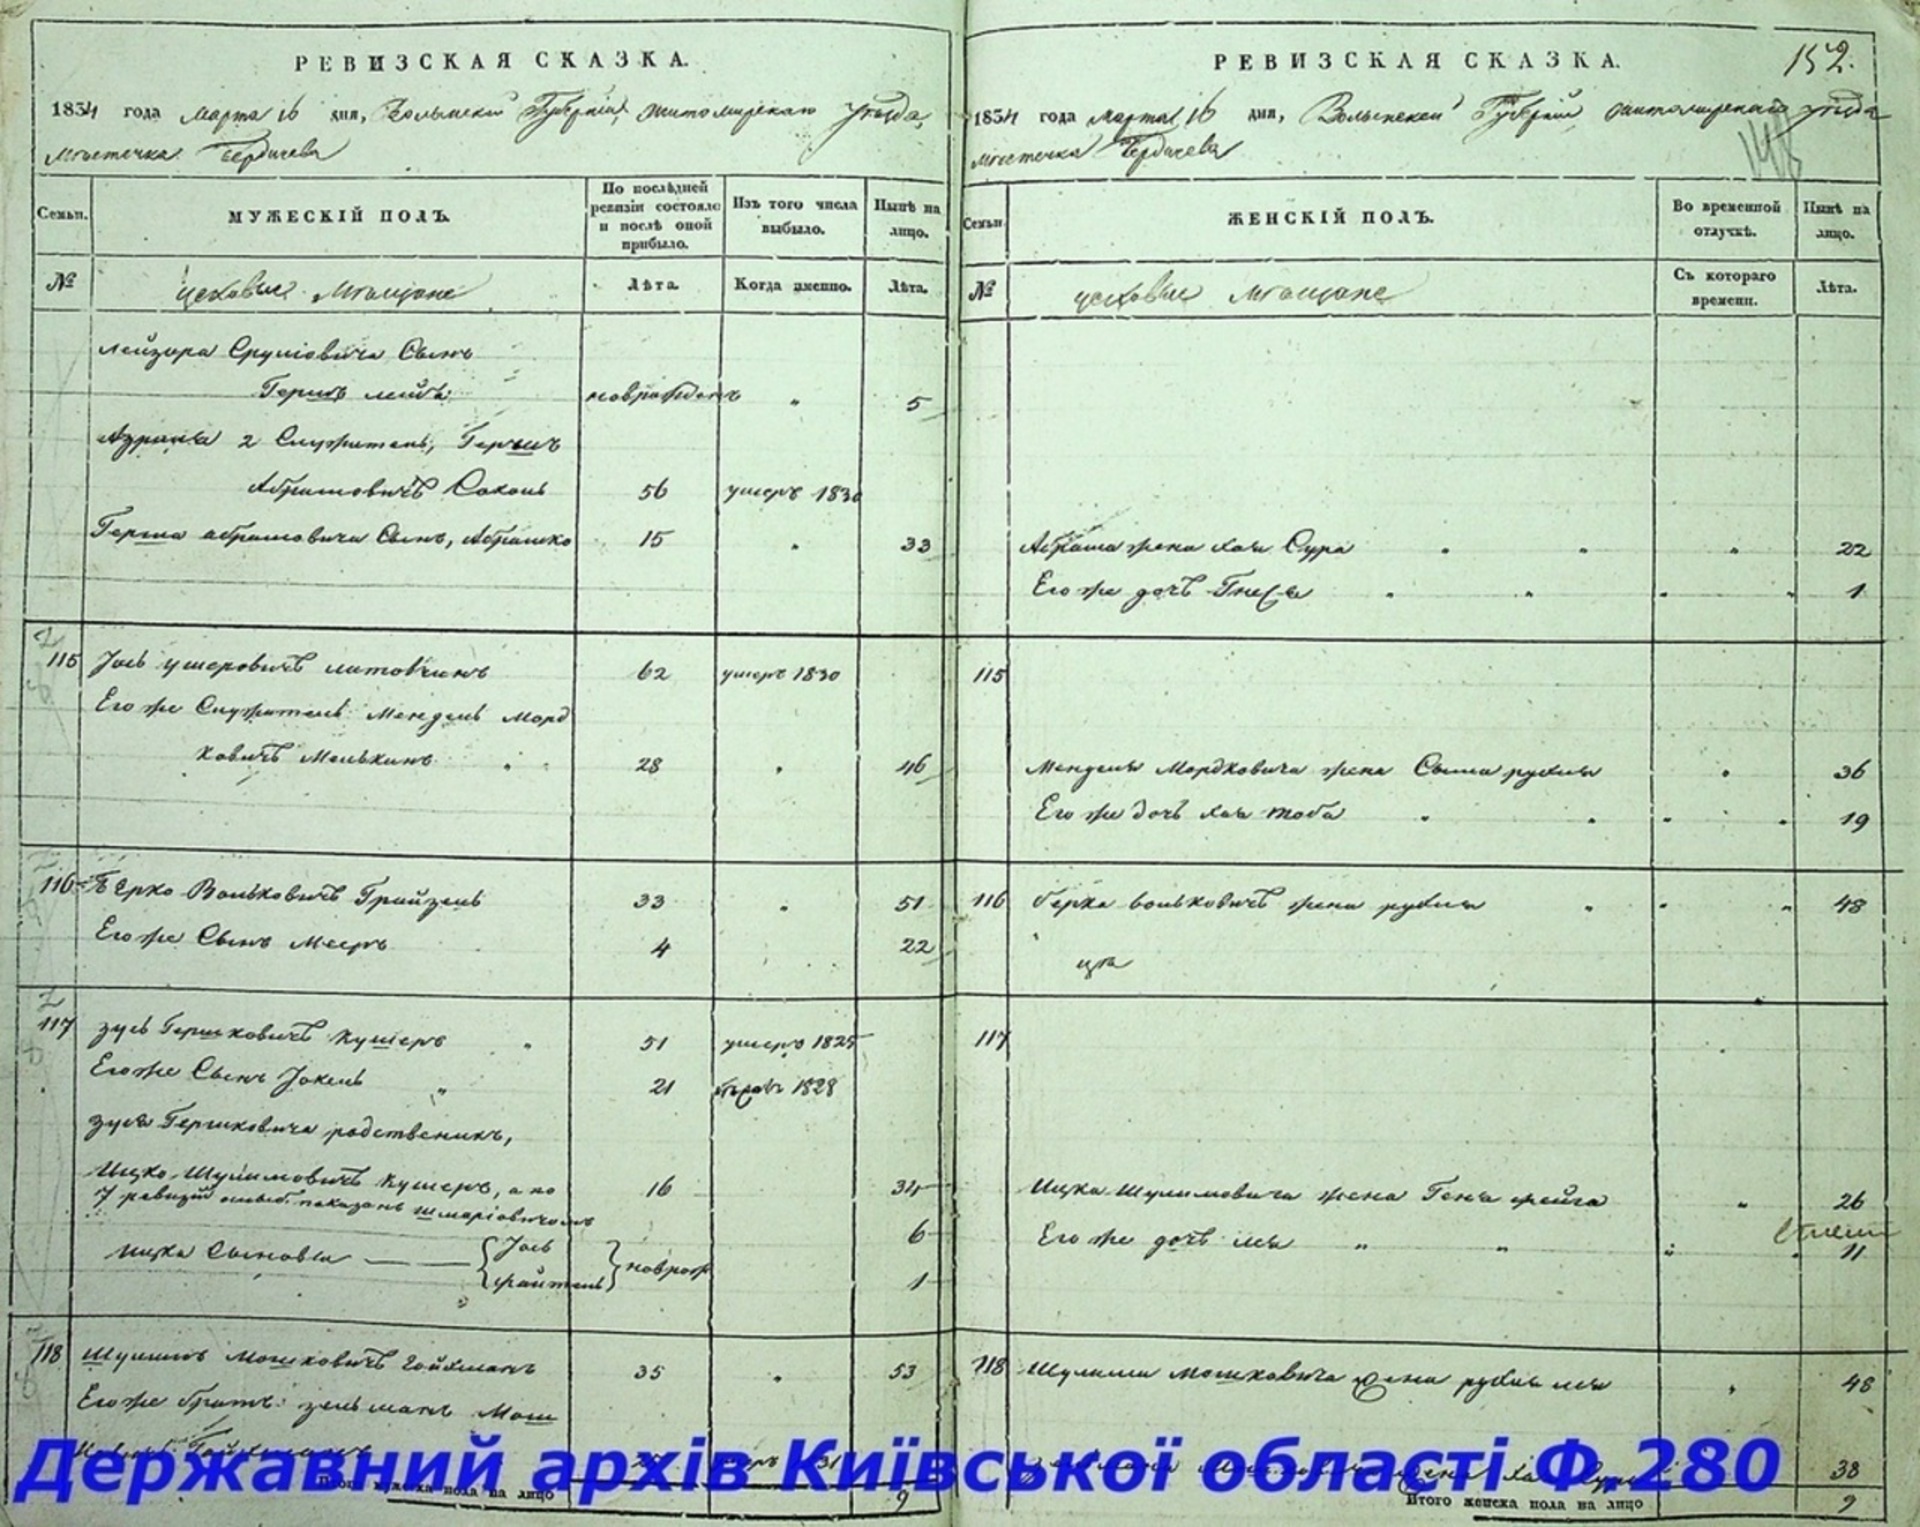 РЕВИЗСКАЯ СКАЗКА.
1834 года марта 16 дня, Волынской Губерніи, Житомирскаго уѣзда,
мѣстечка Бердичева
Семьи.
МУЖЕСКІЙ ПОЛЪ.
По послѣдней ревизіи состояло и послѣ оной прибыло.
Изъ того числа выбыло.
Нынѣ на лицо.
№
цеховые мѣщане
Лѣта.
Когда именно.
Лѣта.
Лейзора Сруліовича Сынъ
Гершъ лейба новрожденъ " 5
2 Служитель, Гершъ
Абрамовичъ 56 умеръ 1830
Герша абрамовича Сынъ, Абрамко 15 " 33
115 Іось ушеровичъ литовчинъ 62 умеръ 1830
Его же Служитель Мендель Морд
ковичъ Менькинъ 28 " 46
116 Берко Вольковичъ Грийзель 33 " 51
Его же Сынъ Мееръ 4 22
117 Зусь Гершковичъ Кушеръ " 51 умеръ 1825
Его же Сынъ Іокель " 21 1828
Зуся Гершковича родственникъ,
Ицко Шулимовичъ Кушеръ, а по 16 34
7 ревизіи ошиб. показанъ Шмаріовичомъ
Ицка Сыновья Іось новрож 6
файтель 1
118 Шулимъ Мошковичъ Гойхманъ 35 " 53
Его же братъ зельманъ Мош
Итого мужеска пола на лицо 9
РЕВИЗСКАЯ СКАЗКА.
152.
1834 года марта 16 дня, Волынской Губерніи Житомирскаго уѣзда
мѣстечка Бердичева
Семьи.
ЖЕНСКІЙ ПОЛЪ.
Во временной отлучкѣ.
Нынѣ на лицо.
№
цеховые мѣщане
Съ котораго времени.
Лѣта.
Абрама жена хая Сура " " " 22
Его же дочь Гнеся " " " " 1
115
Менделя Мордковича жена Сыма рухля " 36
Его же дочь хая тоба " " " " 19
116 берка вольковичъ жена рухля " " " 48
117
Ицка Шулимовича жена Геня фейга " 26
Его же дочь лея " " " " 11
118 Шулима мошковича жена рухля лея " 48
38
Итого женска пола на лицо 9
Державний архів Київської області Ф. 280